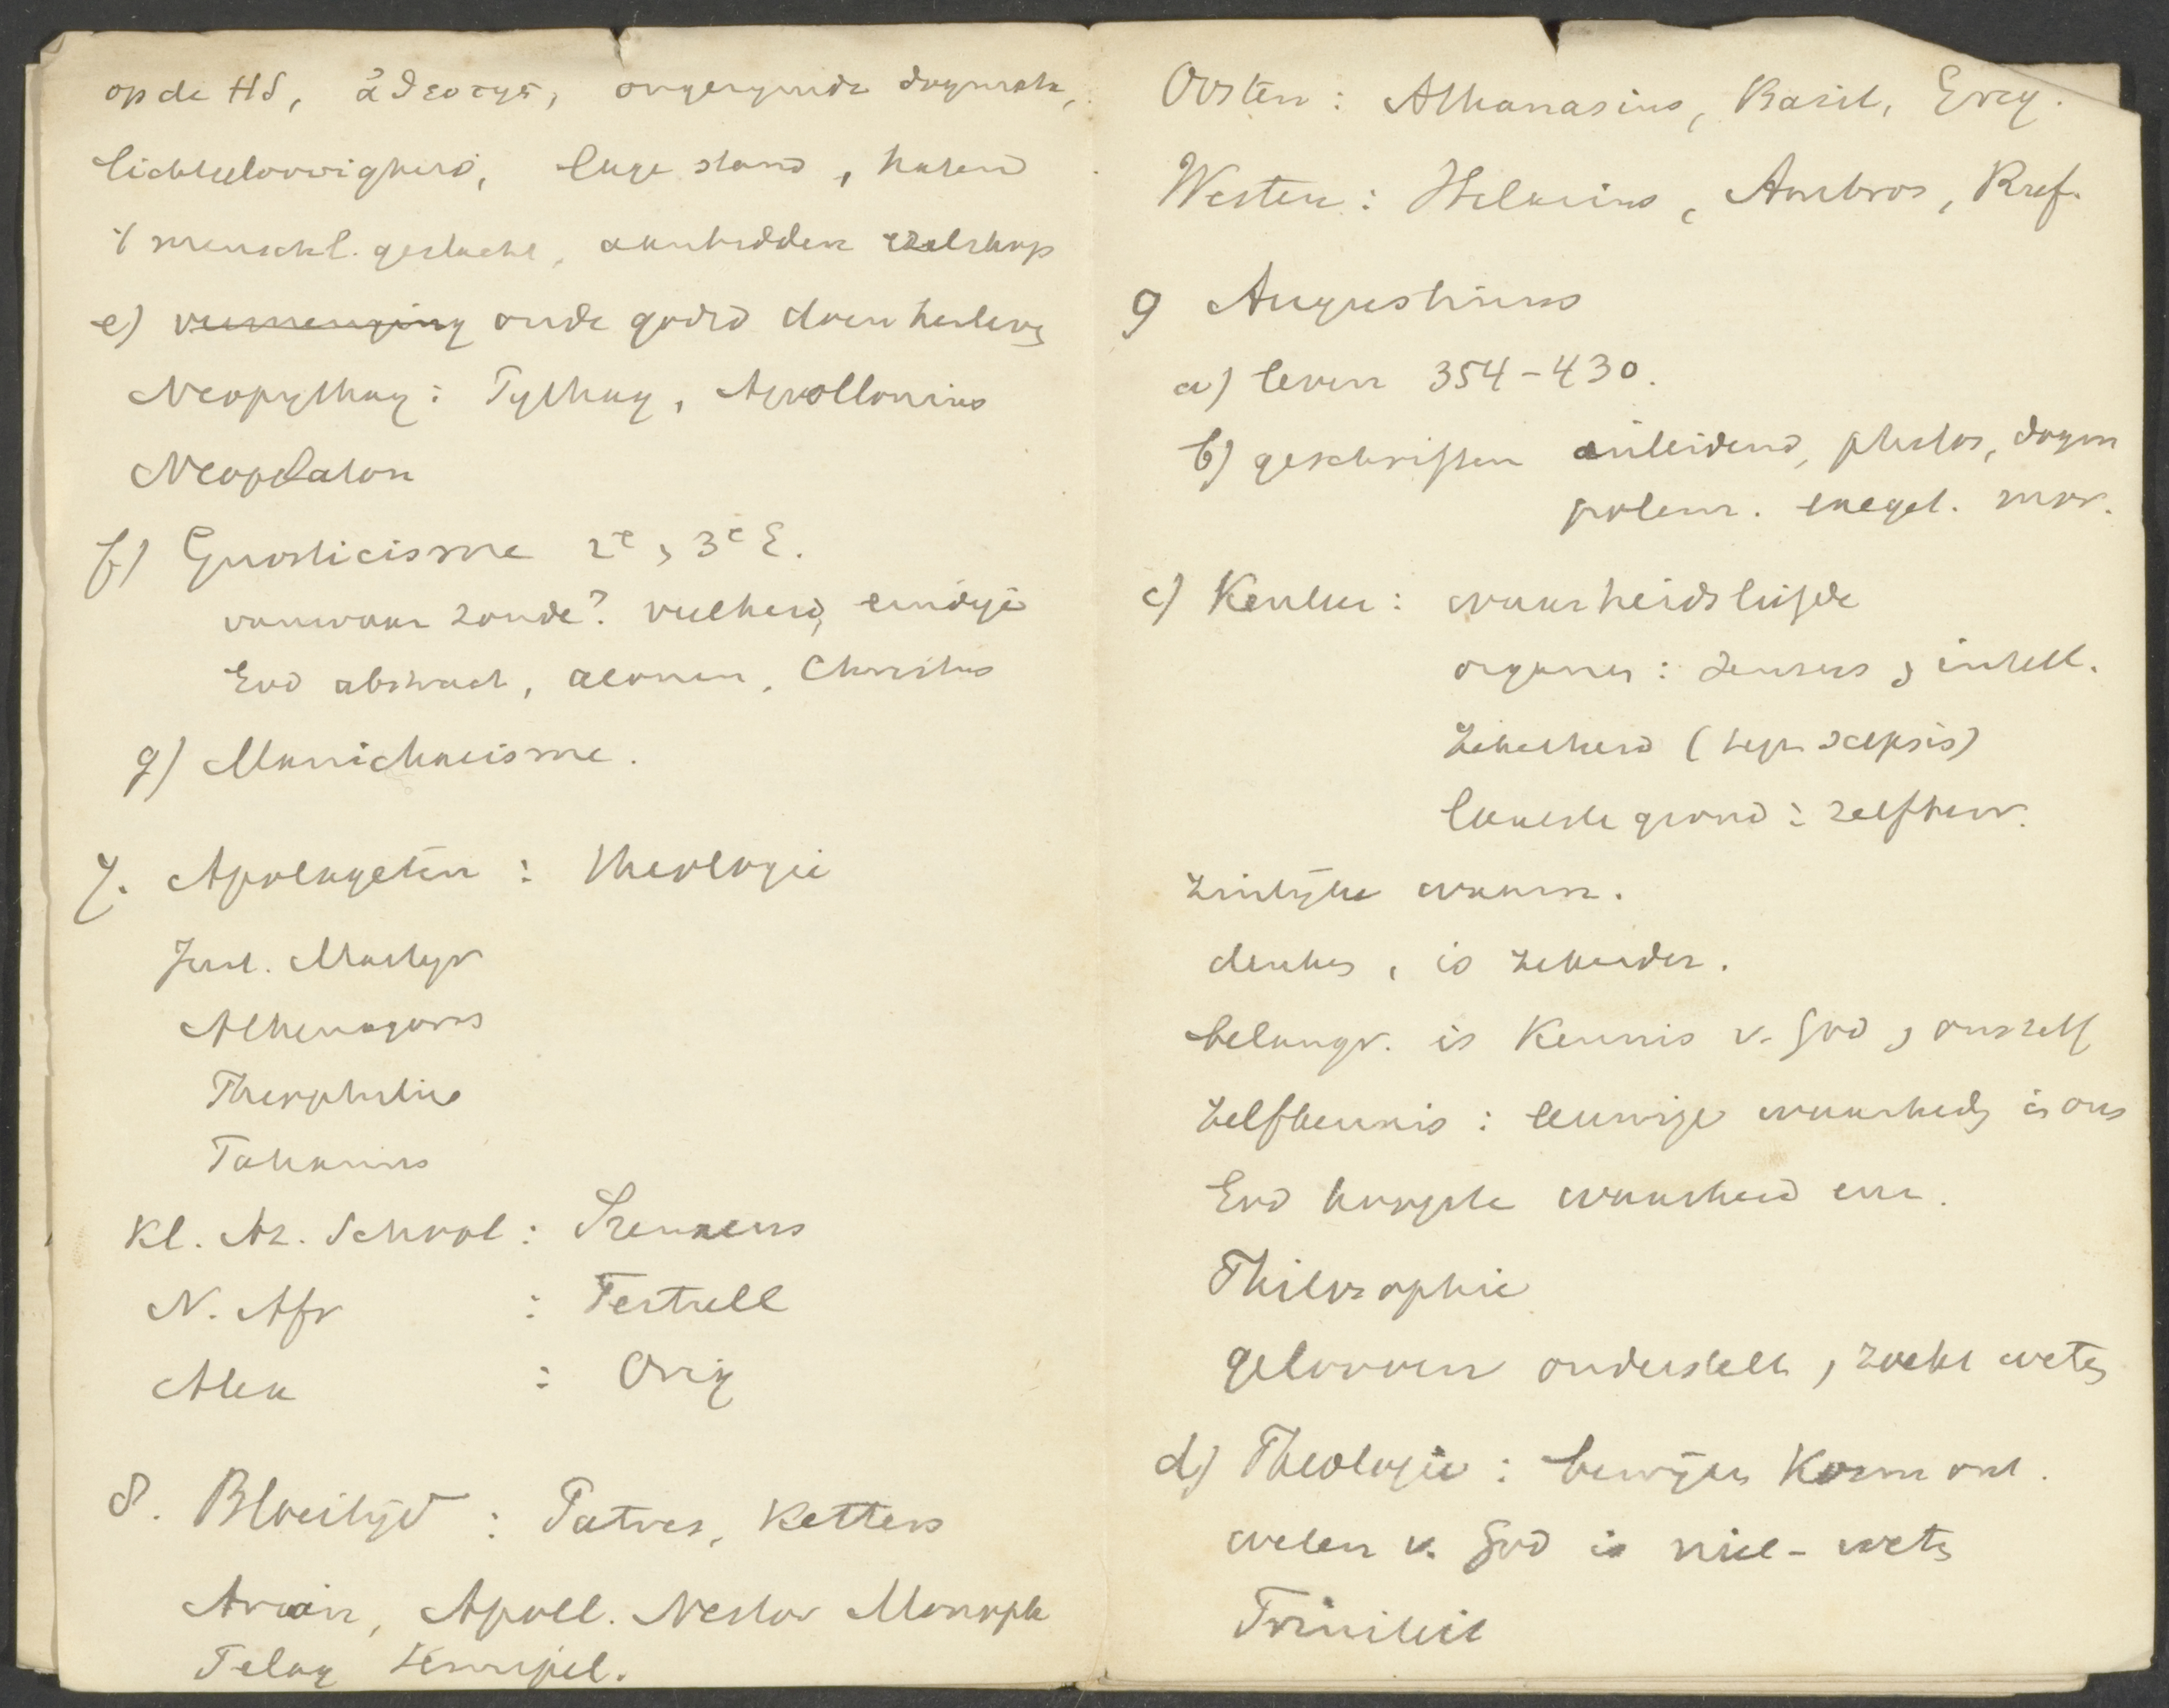 op de HS, ἀθεοτης, ongerymde dogmata,
lichtgeloovigheid, lage stand, haten
't menschl. geslacht, aanbidden ezelskop
e) vermenging oude godsd doen herlevg
Neopythag: Pythag, Apollonius
Neoplaton
f) Gnosticisme 2e, 3e E.
vanwaar zonde? veelheid, eindige
God abstract, aeonen, Christus
g) Manichaeisme.
7. Apologeten : theologie
Just. Martyr
Athenagoras
Theophilus
Tatianus
Kl. Az. School : Irenaeus
N. Afr : Tertull
Alex : Orig
8. Bloeitijd : Patres, Ketters
Arian, Apoll. Nestor Monoph
Pelag Semipel.
Oosten : Athanasius, Basil, Greg.
Westen : Hilarius, Ambros, Ruf.
9 Augustinus
a) leven 354-430.
b) geschriften inleidend, philos, dogm
polem. exeget. mor.
c) Kenleer : waarheidsliefde
organen : sensus , intell.
Zekerheid (tegen scepsis)
laatste grond : zelfbew.
Zinlijke waarn.
denken, is zekerder.
belangr. is Kennis v. God , onszelf
Zelfkennis : eeuwige waarhedn in ons
God hoogste waarheid enz.
Philosophie
gelooven onderstelt , zoekt wetn
d) Theologie : bewijzen Kosm ont.
weten v. God is niet-wetn
Triniteit